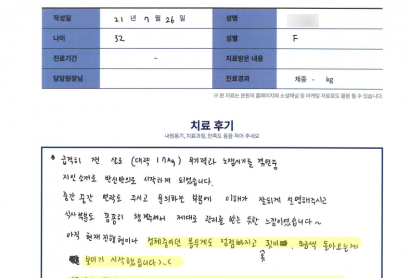 작성일 21 년 7 월 26 일 성명
나이 32 성별 F
진료기간 - 치료받은 내용
담당원장님 진료경과 체중 - kg
※ 본 자료는 본원의 홈페이지와 소셜채널 등 마케팅 자료로도 활용 될 수 있습니다.
치료 후기
내원동기, 치료과정, 만족도 등을 적어 주세요
급격히 찐 살로 (대략 17kg) 무기력과
지인 소개로 반신반의로 시작하게 되었습니다.
중간 중간 연락도 주시고 문의하는 부분에 이해가 잘되게 설명해주시고
식사부분도 꼼꼼히 챙겨주셔서 제대로 관리를 받는 듯한 느낌이었습니다~
아직 현재진행형이나 정체중이던 몸무게도 점점빠지고 조금씩 돌아오는게
보이기 시작했습니다